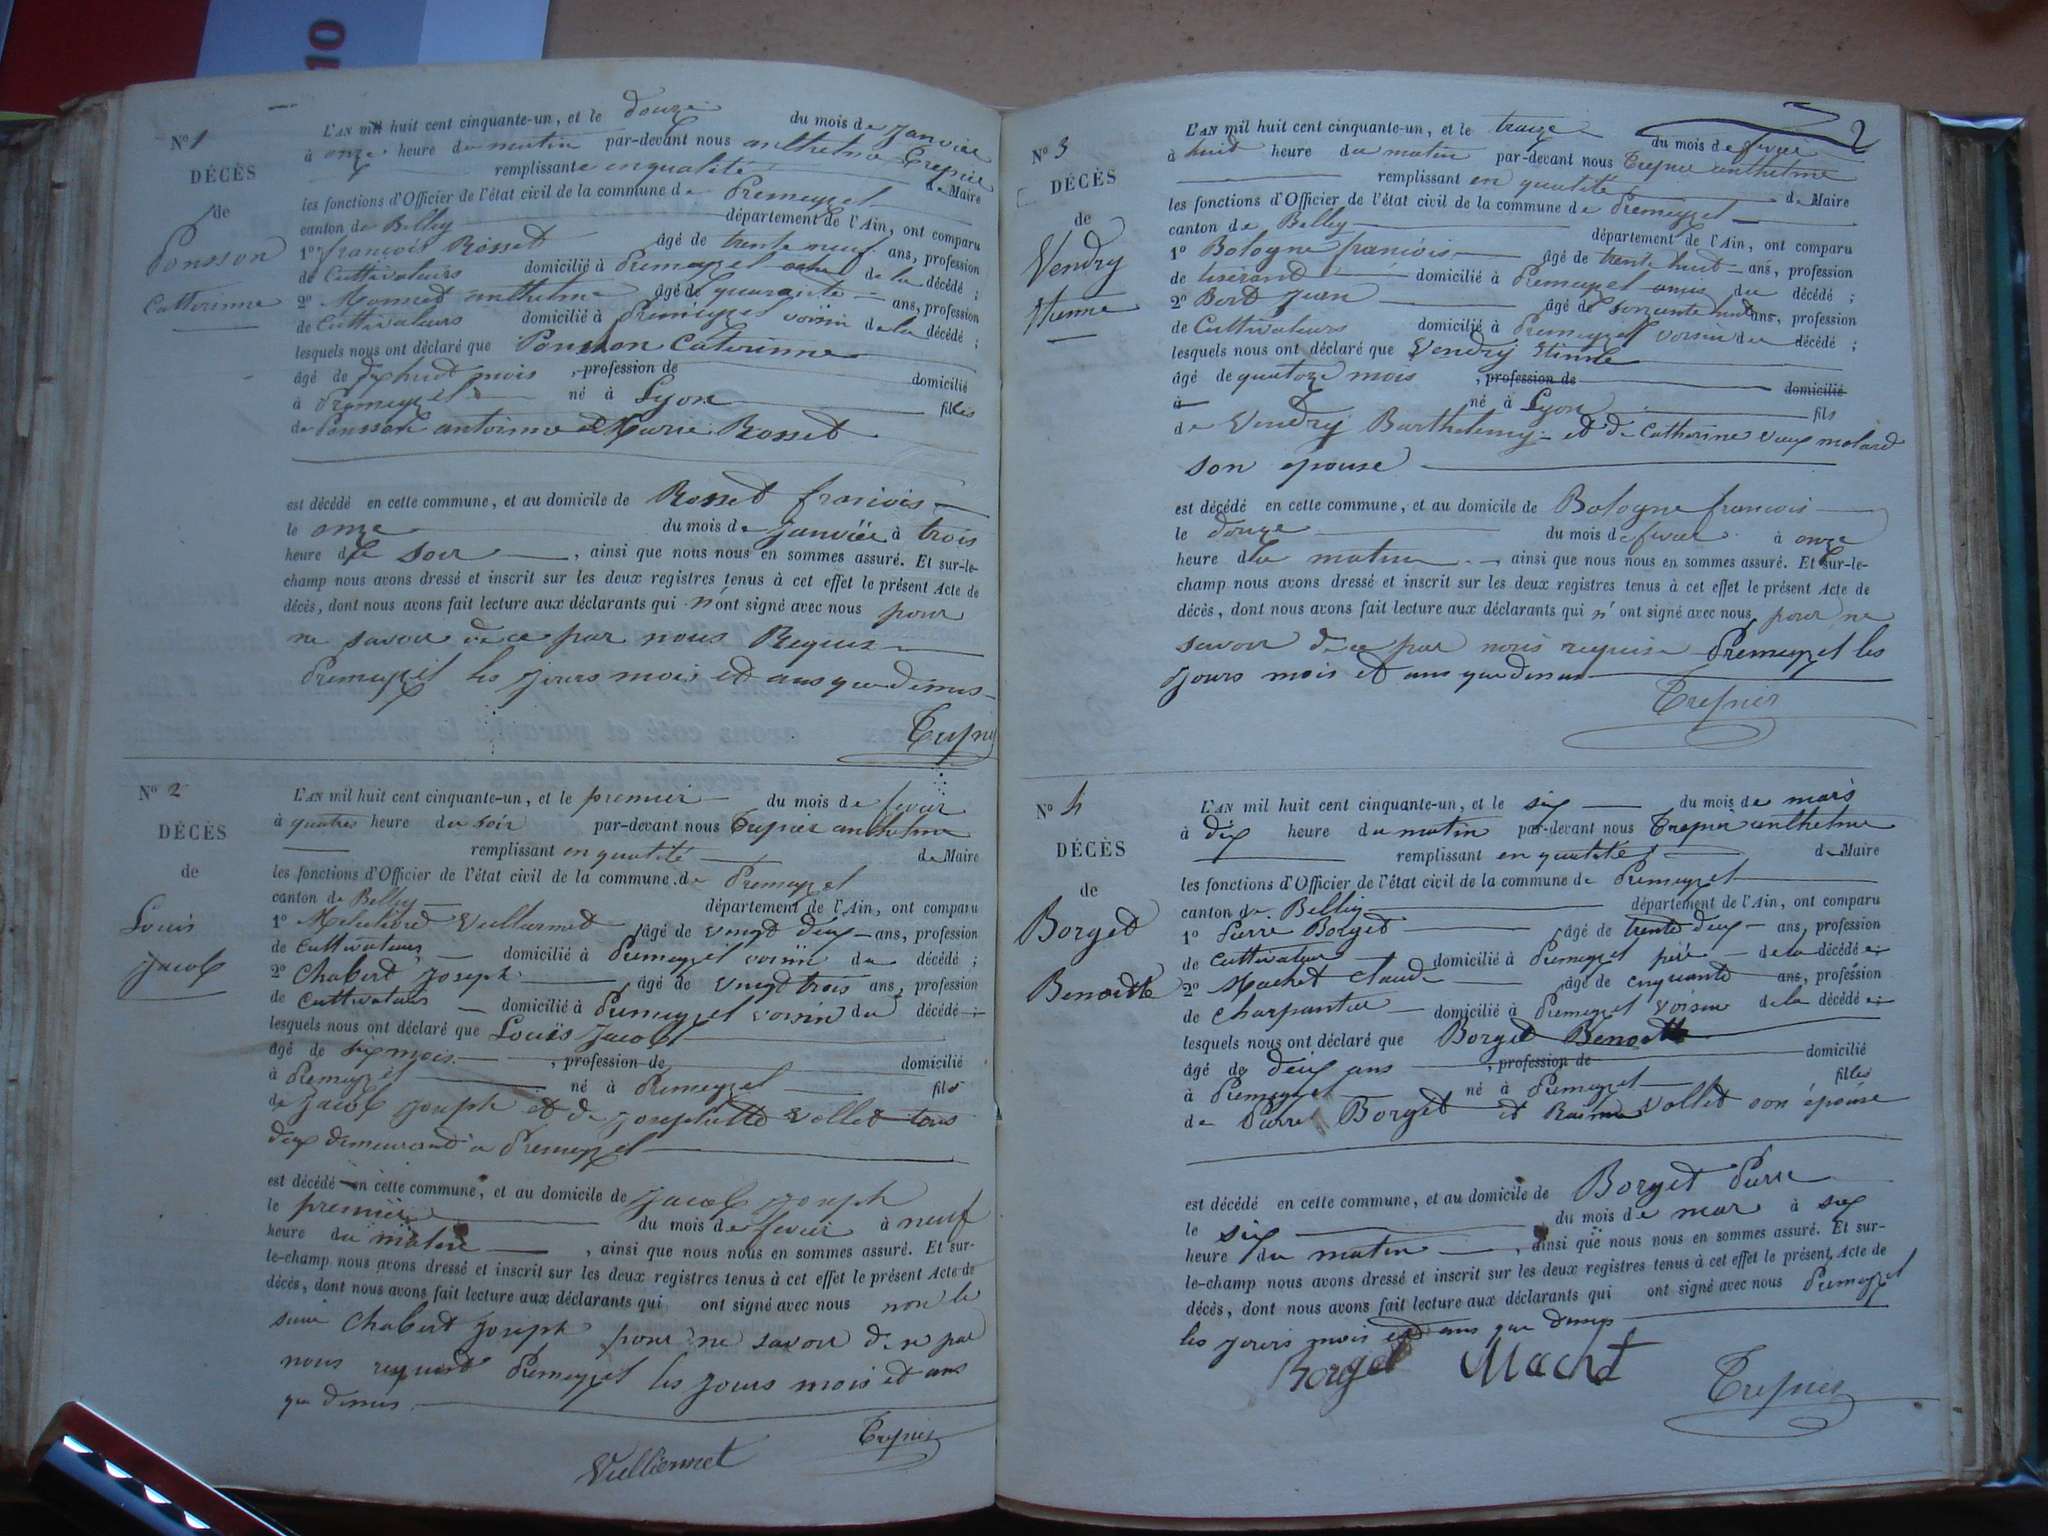 10
N° 1
DÉCÈS
de
Ponsson
Catterinne
L'AN mil huit cent cinquante-un, et le douze du mois de janvier
à onze heure du matin par-devant nous anthelme Trepier
remplissant en qualité de Maire
les fonctions d'Officier de l'état civil de la commune de Premeyzel
canton de Belley département de l'Ain, ont comparu
1° françois Rosset âgé de trente neuf ans, profession
de Cultivateurs domicilié à Premeyzel de la décédé ;
2° Monnet anthelme âgé de quarante ans, profession
de Cultivateurs domicilié à Premeyzel voisin de la décédé ;
lesquels nous ont déclaré que Ponsson Caterinne
âgé de dix huit mois , profession de domicilié
à Premeyzel né à Lyon filles
de Ponsson antoinne et Marie Rosset
est décédé en cette commune, et au domicile de Rosset francois
le onze du mois de janvier à trois
heure de soir , ainsi que nous nous en sommes assuré. Et sur-le-
champ nous avons dressé et inscrit sur les deux registres tenus à cet effet le présent Acte de
décès, dont nous avons fait lecture aux déclarants qui n'ont signé avec nous pour
ne savoir de ce par nous Requis
Premeyzel les jours mois et ans que dessus
Trepier
N° 2
DÉCÈS
de
Louis
Jacob
L'AN mil huit cent cinquante-un, et le premier du mois de fevrier
à quatres heure du soir par-devant nous Trepier anthelme
remplissant en qualité de Maire
les fonctions d'Officier de l'état civil de la commune de Premeyzel
canton de Belley département de l'Ain, ont comparu
1° Vulliermet âgé de vingt deux ans, profession
de Cultivateurs domicilié à Premeyzel voisin du décédé ;
2° Chabert Joseph âgé de vingt trois ans, profession
de Cultivateurs domicilié à Premeyzel voisin du décédé ;
lesquels nous ont déclaré que Louis Jacob
âgé de six mois , profession de domicilié
à Premeyzel né à Premeyzel fils
de Jacob Joseph et de Josephette Vollet tous
deux demeurant à Premeyzel
est décédé en cette commune, et au domicile de Jacob Joseph
le premier du mois de fevrier à neuf
heure du matin , ainsi que nous nous en sommes assuré. Et sur-
le-champ nous avons dressé et inscrit sur les deux registres tenus à cet effet le présent Acte de
décès, dont nous avons fait lecture aux déclarants qui ont signé avec nous non le
sieur Chabert Joseph pour ne savoir de ce par
nous requis Premeyzel les jours mois et ans
que dessus
Trepier
Vulliermet
2
N° 3
DÉCÈS
de
Vendry
Etienne
L'AN mil huit cent cinquante-un, et le treize du mois de fevrier
à huit heure du matin par-devant nous Trepier anthelme
remplissant en qualité de Maire
les fonctions d'Officier de l'état civil de la commune de Premeyzel
canton de Belley département de l'Ain, ont comparu
1° Bologne francois âgé de trente huit ans, profession
de tiserand domicilié à Premeyzel amis du décédé ;
2° Bert Jean âgé de soixante huit ans, profession
de Cultivateurs domicilié à Premeyzel voisin du décédé ;
lesquels nous ont déclaré que Vendry Etienne
âgé de quatorze mois , profession de domicilié
à né à Lyon fils
de Vendry Barthelemy et de Catherine vieux molard
son epouse
est décédé en cette commune, et au domicile de Bologne francois
le douze du mois de fevrier à onze
heure du matin , ainsi que nous nous en sommes assuré. Et sur-le-
champ nous avons dressé et inscrit sur les deux registres tenus à cet effet le présent Acte de
décès, dont nous avons fait lecture aux déclarants qui n' ont signé avec nous pour ne
savoir de ce par nous requis Premeyzel les
jours mois et ans que dessus
Trepier
N° 4
DÉCÈS
de
Borget
Benoitte
L'AN mil huit cent cinquante-un, et le six du mois de mars
à dix heure du matin par-devant nous Trepier anthelme
remplissant en qualité de Maire
les fonctions d'Officier de l'état civil de la commune de Premeyzel
canton de Belley département de l'Ain, ont comparu
1° Pierre Borget âgé de trente deux ans, profession
de Cultivateur domicilié à Premeyzel père de la décédé ;
2° Machet Claude âgé de cinquante ans, profession
de Charpantier domicilié à Premeyzel voisin de la décédé ;
lesquels nous ont déclaré que Borget Benoitte
âgé de deux ans , profession de domicilié
à Premeyzel né à Premeyzel filles
de Pierre Borget et Vollet son épouse
est décédé en cette commune, et au domicile de Borget Pierre
le six du mois de mars à six
heure du matin , ainsi que nous nous en sommes assuré. Et sur-
le-champ nous avons dressé et inscrit sur les deux registres tenus à cet effet le présent Acte de
décès, dont nous avons fait lecture aux déclarants qui ont signé avec nous Premeyzel
les jours mois et ans que dessus
Borget Machet
Trepier